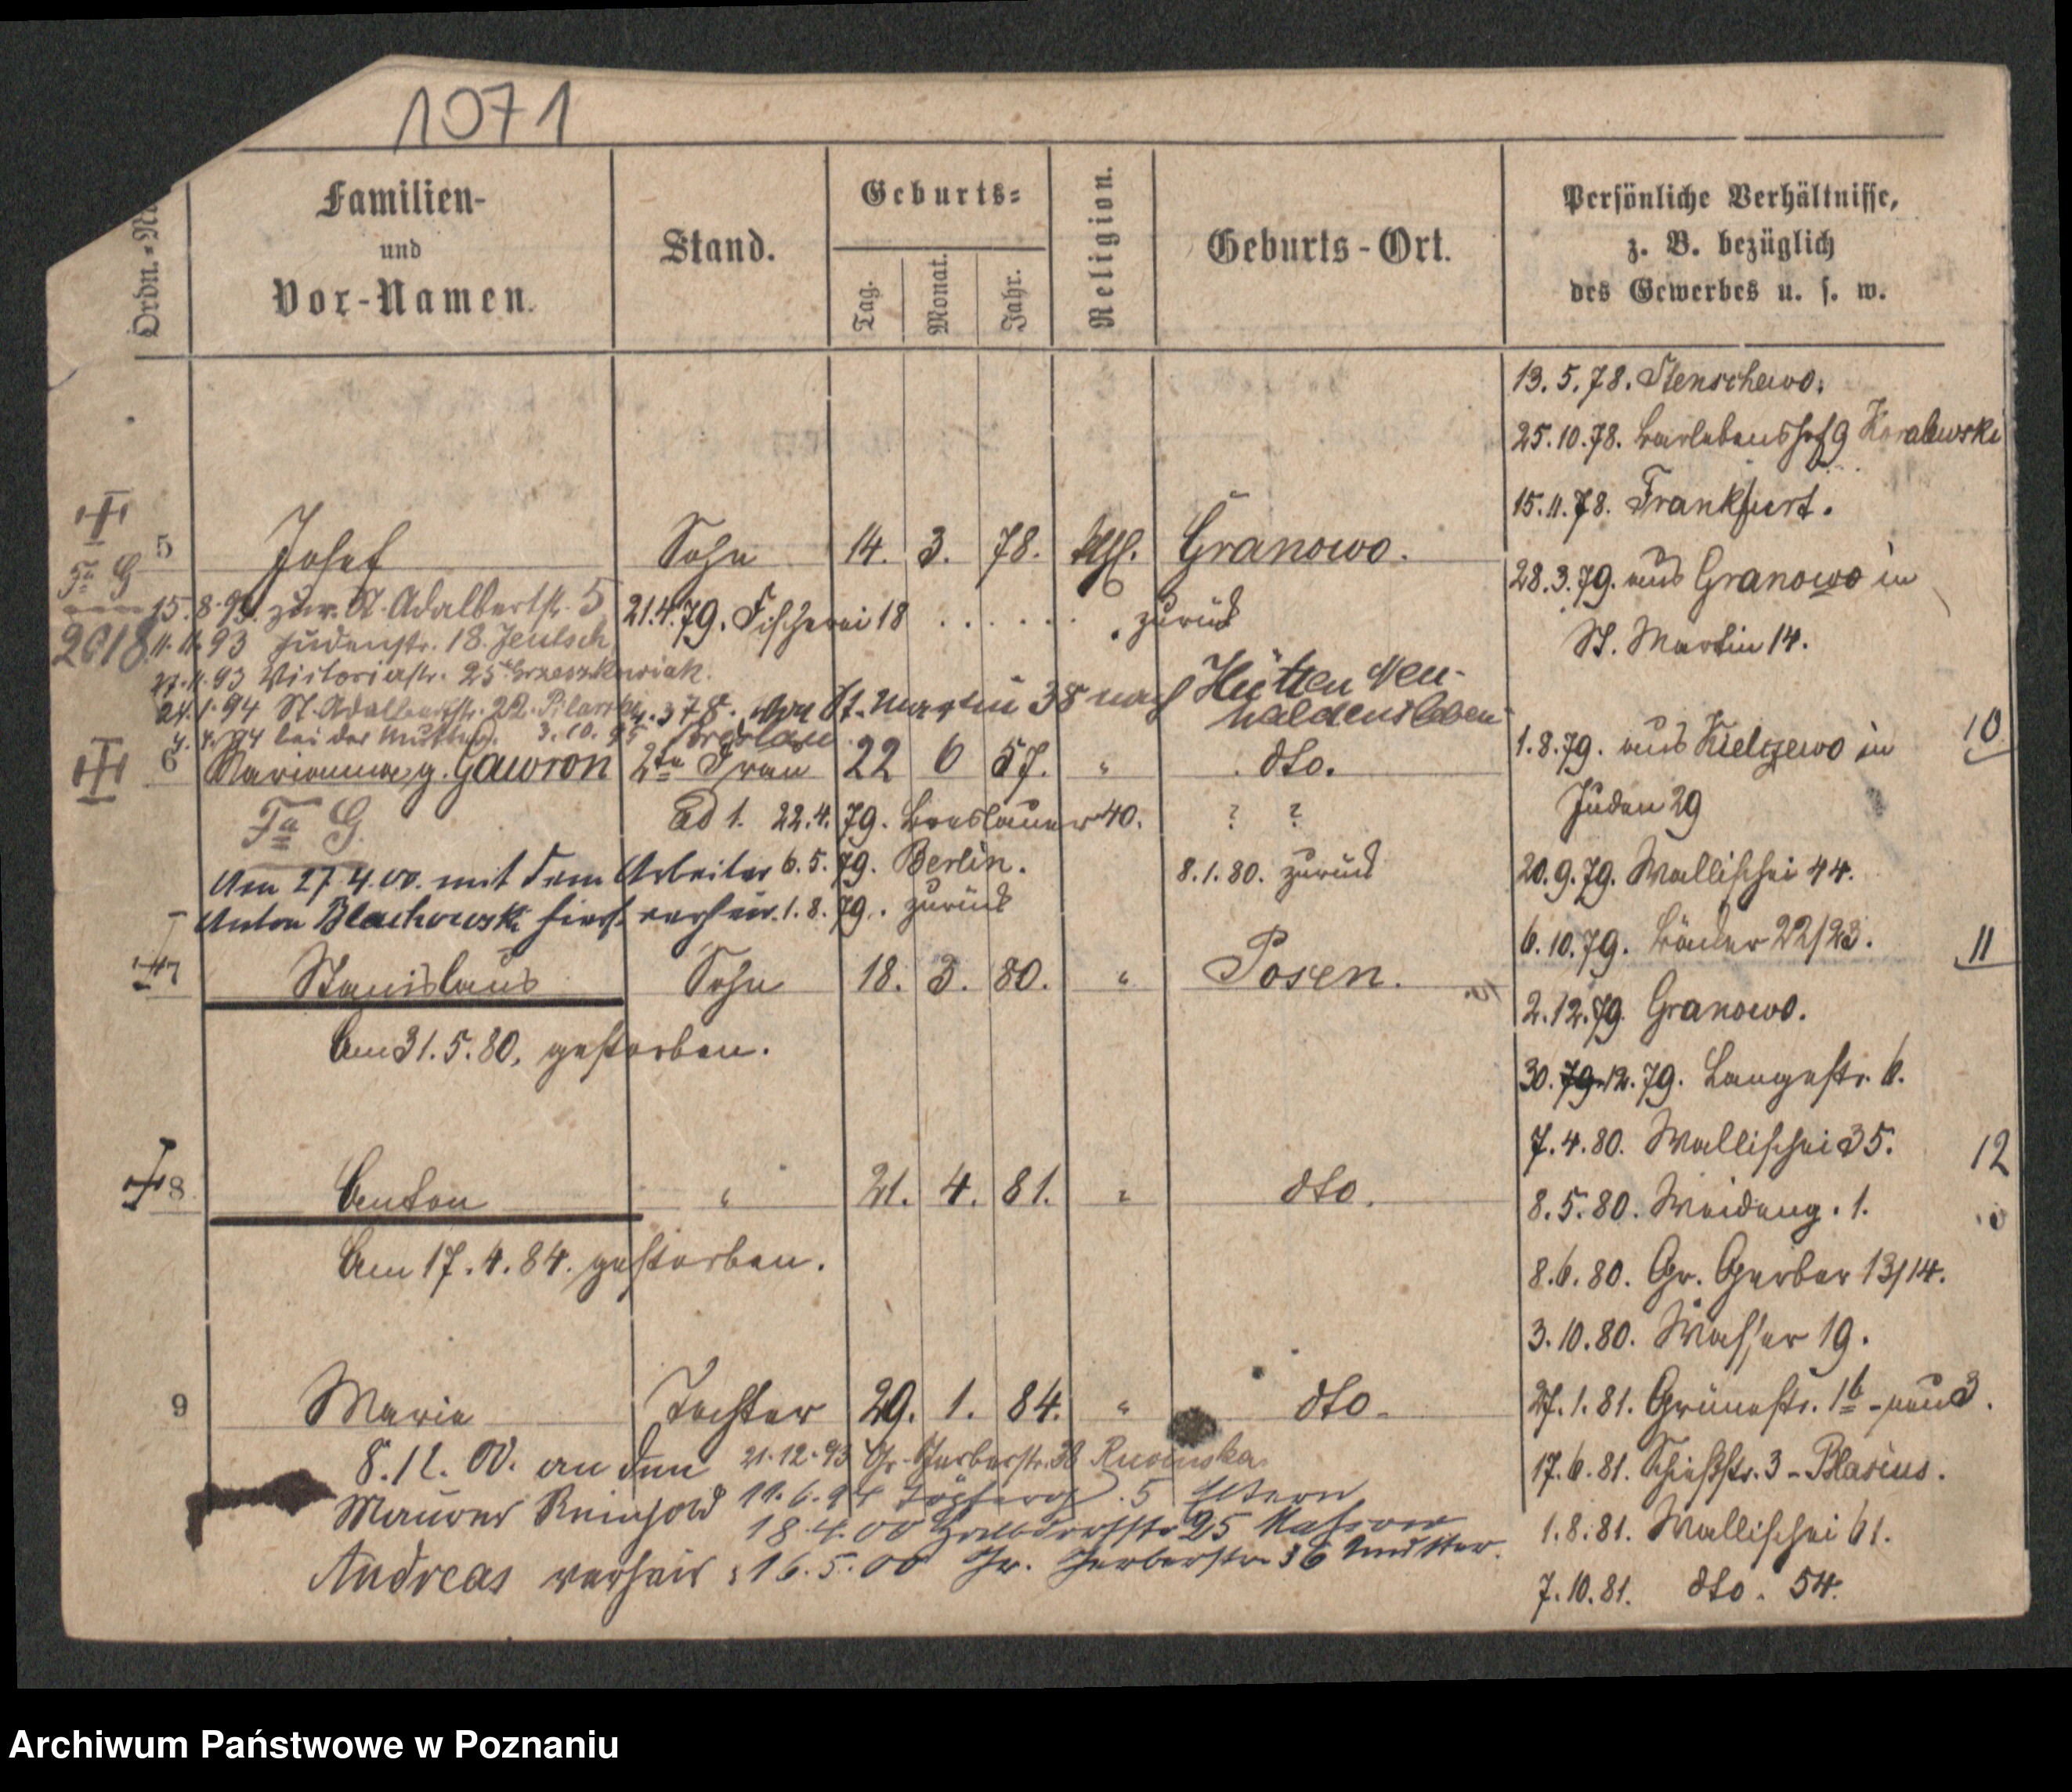 1071
Ordn.-No
Familien-
und
Vor-Namen.
Stand.
Geburts-
Tag.
Monat.
Jahr.
Religion.
Geburts-Ort.
Persönliche Verhältnisse,
z. B. bezüglich
des Gewerbes u. s. w.
13.5.78. Stenschewo.
25.10.78. Berlebenshof 9 Koralewski
15.11.78. Frankfurt.
5 Josef Sohn 14. 3. 78. kath. Granowo.
Fa G
28.3.79. aus Granowo in
St. Martin 14.
15.8.93. zur. St. Adalbertstr. 5
21.4.79. Fischerei 18 . . . . . . zurück
2618
11.11.93 Judenstr. 18. Jentsch
27.11.93 Victoriastr. 25 Grzeszkowiak.
24.1.94 St. Adalbertstr. 22. Pilarski
von St. Martin 38 nach Hütten Neu-
haldensleben
4.4.94 bei der Mutter. 3.10.95 Breslau
6 Marianna g. Gawron 2te Frau 22 6 57. " dto.
1.8.79. aus Kielczewo in
Juden 29
10
Fa G.
Ad 1. 22.4.79. Breslauer 40. ? ?
Am 27.4.00. mit dem Arbeiter
6.5.79. Berlin. 8.1.80. zurück
20.9.79. Wallischei 44.
Anton Blachowski hier verheir.
1.8.79. zurück
6.10.79. Bäcker 22/23.
11
7 Stanislaus Sohn 18. 3. 80. " Posen.
2.12.79. Granowo.
Am 31.5.80. gestorben.
30.79.12.79. Langestr. 6.
7.4.80. Wallischei 35.
12
8 Anton " 21. 4. 81. " dto.
8.5.80. Weideng. 1.
Am 17.4.84. gestorben.
8.6.80. Gr. Gerber 13/14.
3.10.80. Wasser 19.
9 Maria Tochter 29. 1. 84. " dto.
27.1.81. Grünestr. 1b - neu 3.
8.12.00. an den
21.12.93 Gr. Gerberstr. 38
17.6.81. Schießstr. 3 - Blasius.
Maurer Reinhold
11.6.94 Töpferg. 5 Eltern
18.4.00
25
1.8.81. Wallischei 61.
Andreas verheir.
16.5.00 Gr. Gerberstr. 36 Mutter.
7.10.81. dto. 54.
Archiwum Państwowe w Poznaniu